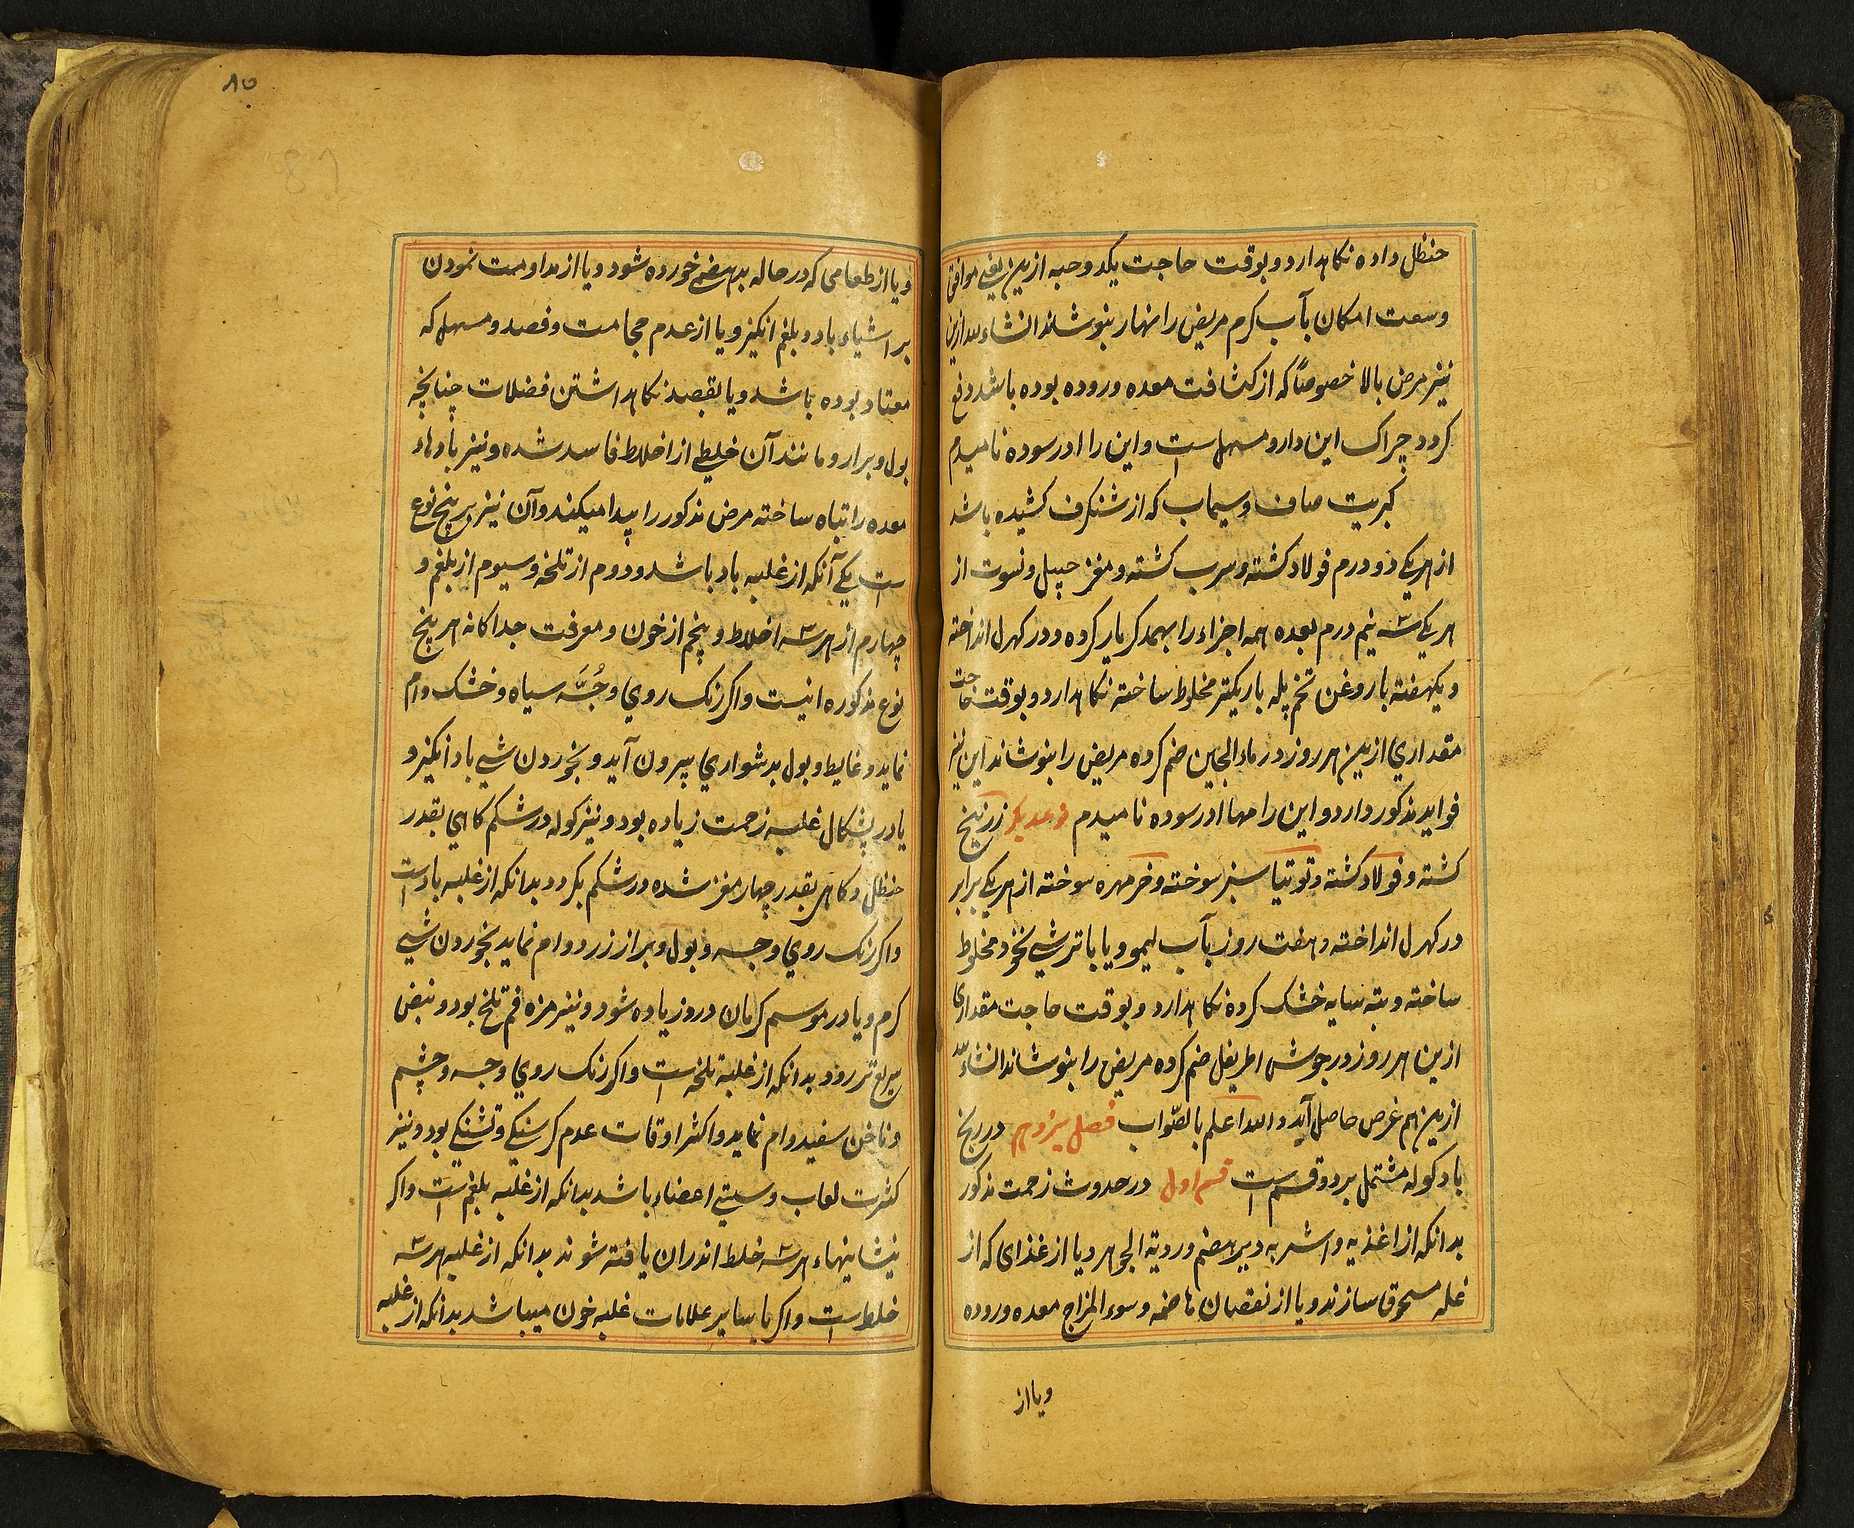 حنظل داده نکاهدارد و بوقت حاجت یکدو حبه ازین یعنی موافق
وسعت امکان بآب کرم مریض را نهار بنوشاند انشاءالله ازین
نیز مرض بالا خصوصاً که از کثافت معده و روده بوده باشد دفع
کردد چراک این دارو مسهل است و این را ادرسوده نامیدم
کبریت صاف و سیماب که از شنکرف کشیده باشد
از هریکی دو درم فولاد کشته و سرب کشته و مغز جیپل و نسوت از
هریکی سه نیم درم بعده همه اجزاء را بهمدکر یار کرده و در کهرل انداخته
و یکهفته با روغن تخم پله باریکتر مخلوط ساخته نکاهدارد و بوقت حاجت
مقداری ازین هر روز در ماء الجبن ضم کرده مریض را بنوشاند این نیز
فواید مذکور دارد و این را مها ادرسوده نامیدم نوعدیکر زرنیخ
کشته و فولاد کشته و توتیا سبز سوخته و خرمهره سوخته از هریکی برابر
در کهرل انداخته و هفت روز بآب لیمو و یا با ترشی نخود مخلوط
ساخته و بته سایه خشک کرده نکاهدارد و بوقت حاجت مقداری
ازین هر روز در جوش اطریفل ضم کرده مریض را بنوشاند انشاءالله
ازین هم غرض حاصل آید والله اعلم بالصّواب فصل سیزدهم در رنج
باد کوله مشتمل بر دو قسم است قسم اول در حدوث زحمت مذکور
بدانکه از اغذیه و اشربه دیرهضم و ردیة الجواهر و یا از غذای که از
غله مسحوق سازند و یا از نقصان هاضمه و سوء المزاج معده و روده
ویا از
۸۵
و یا از طعامی که در حاله بدهضمی خورده شود و یا از مداومت نمودن
بر اشیاء بارد و بلغم انکیز و یا از عدم حجامت و فصد و مسهل که
معتاد بوده باشد و یا بقصد نکاهداشتن فضلات چنانچه
بول و براز و مانند آن خلیطی از اخلاط فاسد شده و نیز بادهاء
معده را تباه ساخته مرض مذکور را پیدا میکند و آن نیز بر پنج نوع
است یکی آنکه از غلبه باد باشد و دوم از تلخه و سیوم از بلغم و
چهارم از هر سه اخلاط و پنجم از خون و معرفت جداکانه هر پنج
نوع مذکوره انیست و اکر رنک روی و جُثَّه سیاه و خشک وام
نماید و غایط و بول بدشواری بیرون آید و بخوردن شی باد انکیز و
یا در پشکال غلبه زحمت زیاده بود و نیز کوله در شکم کاهی بقدر
حنظل و کاهی بقدر چهارمغز شده در شکم بکردد بدانکه از غلبه باد است
و اکر رنک روی و جسه و بول و براز زرد وام نماید بخوردن شی
کرم و یا در موسم کرمان درد زیاده شود و نیز مزه فم تلخ بود و نبض
سریع تر رود بدانکه از غلبة تلخه است و اکر رنک روی و جسه و چشم
و ناخن سفید وام نماید و اکثر اوقات عدم کرسنکی و تشنکی بود و نیز
کثرت لعاب و سستی اعضاء باشد بدانکه از غلبه بلغم است و اکر
نیشانیهاء هر سه خلط اندران یافته شوند بدانکه از غلبه هر سه
خلط است و اکر با سایر علامات غلبه خون میباشد بدانکه از غلبه